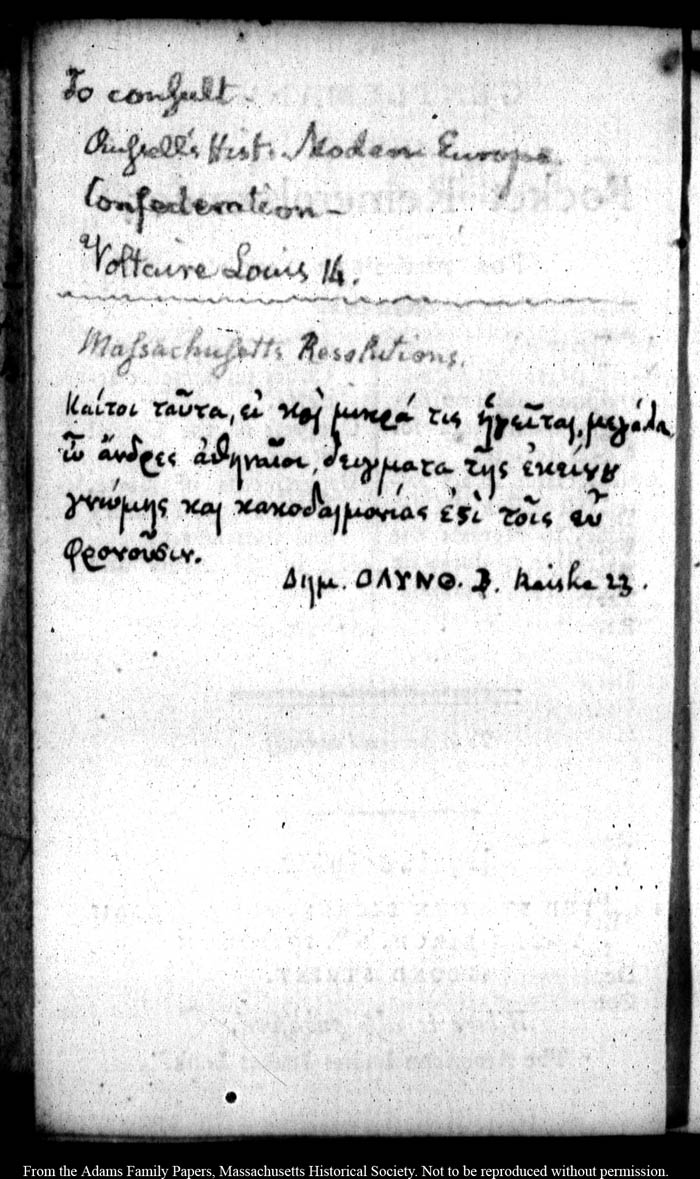 To consult
Russell's Hist. Modern Europe
Confederation—
Voltaire Louis 14.
Massachusetts Resolutions.
Καίτοι ταῦτα, εἰ καὶ μικρά τις ἡγεῖται, μεγάλα,
ὦ ἄνδρες ἀθηναῖοι, δείγματα τῆς ἐκείνου
γνώμης και κακοδαιμονίας ἐστὶ τοῖς εὖ
φρονοῦσιν.
Δημ. ΟΛΥΝΘ. B. Reiske 23.
From the Adams Family Papers, Massachusetts Historical Society. Not to be reproduced without permission.